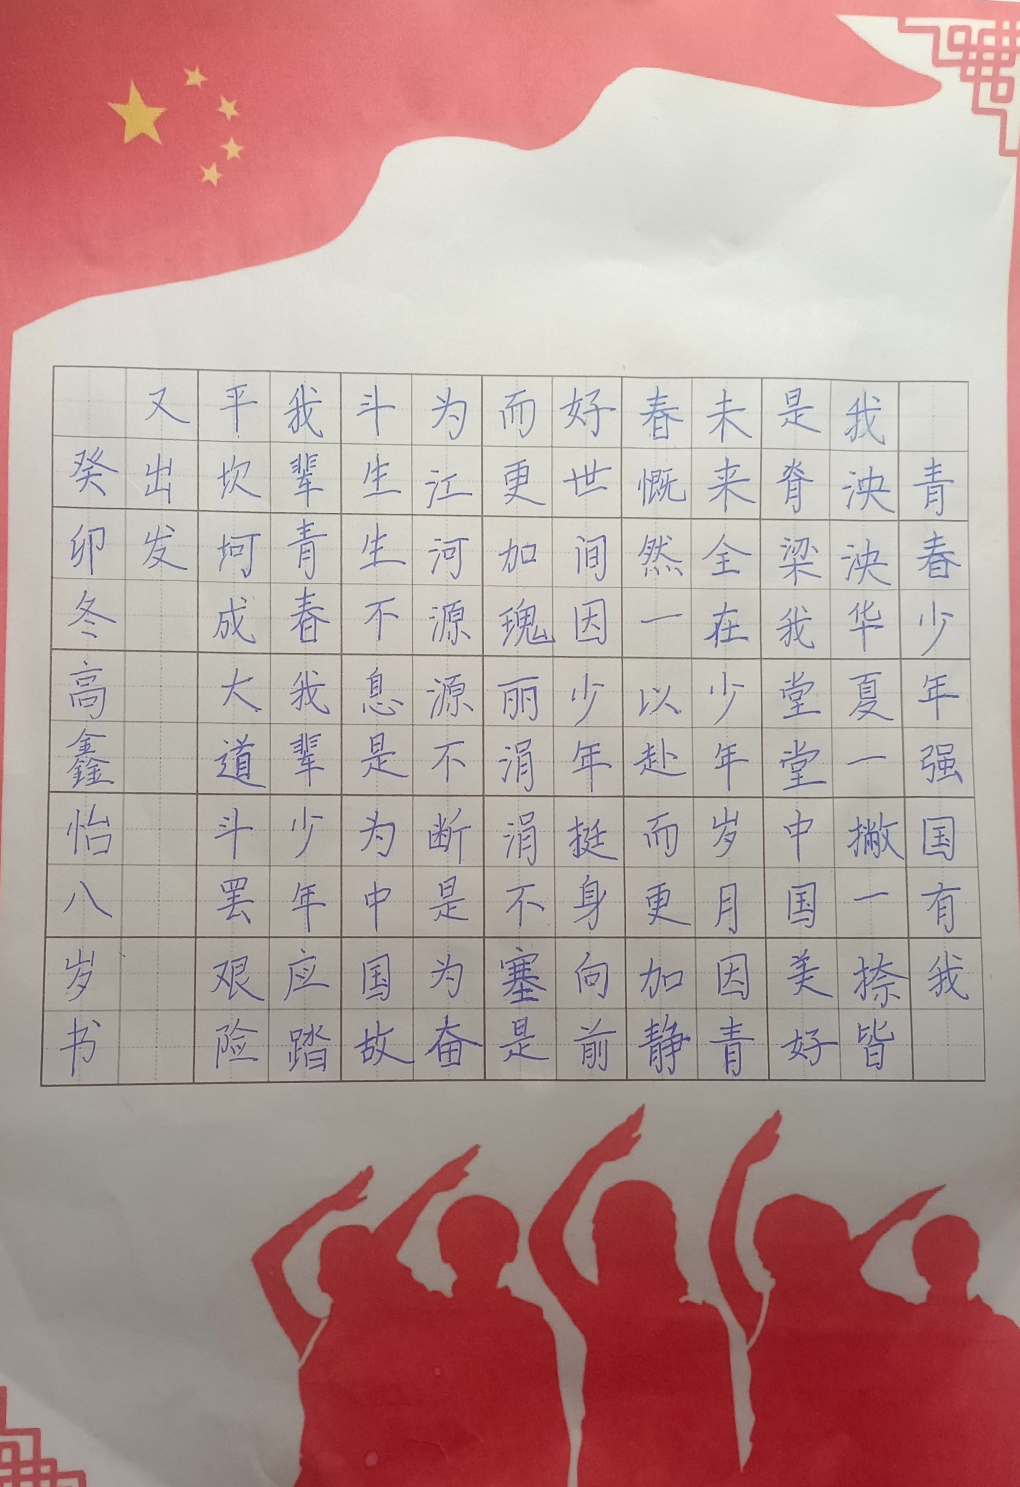 青春少年强国有我
我泱泱华夏一撇一捺皆
是脊梁我堂堂中国美好
未来全在少年岁月因青
春慨然一以赴而更加静
好世间因少年挺身向前
而更加瑰丽涓涓不塞是
为江河源源不断是为奋
斗生生不息是为中国故
我辈青春我辈少年应踏
平坎坷成大道斗罢艰险
又出发
癸卯冬高鑫怡八岁书